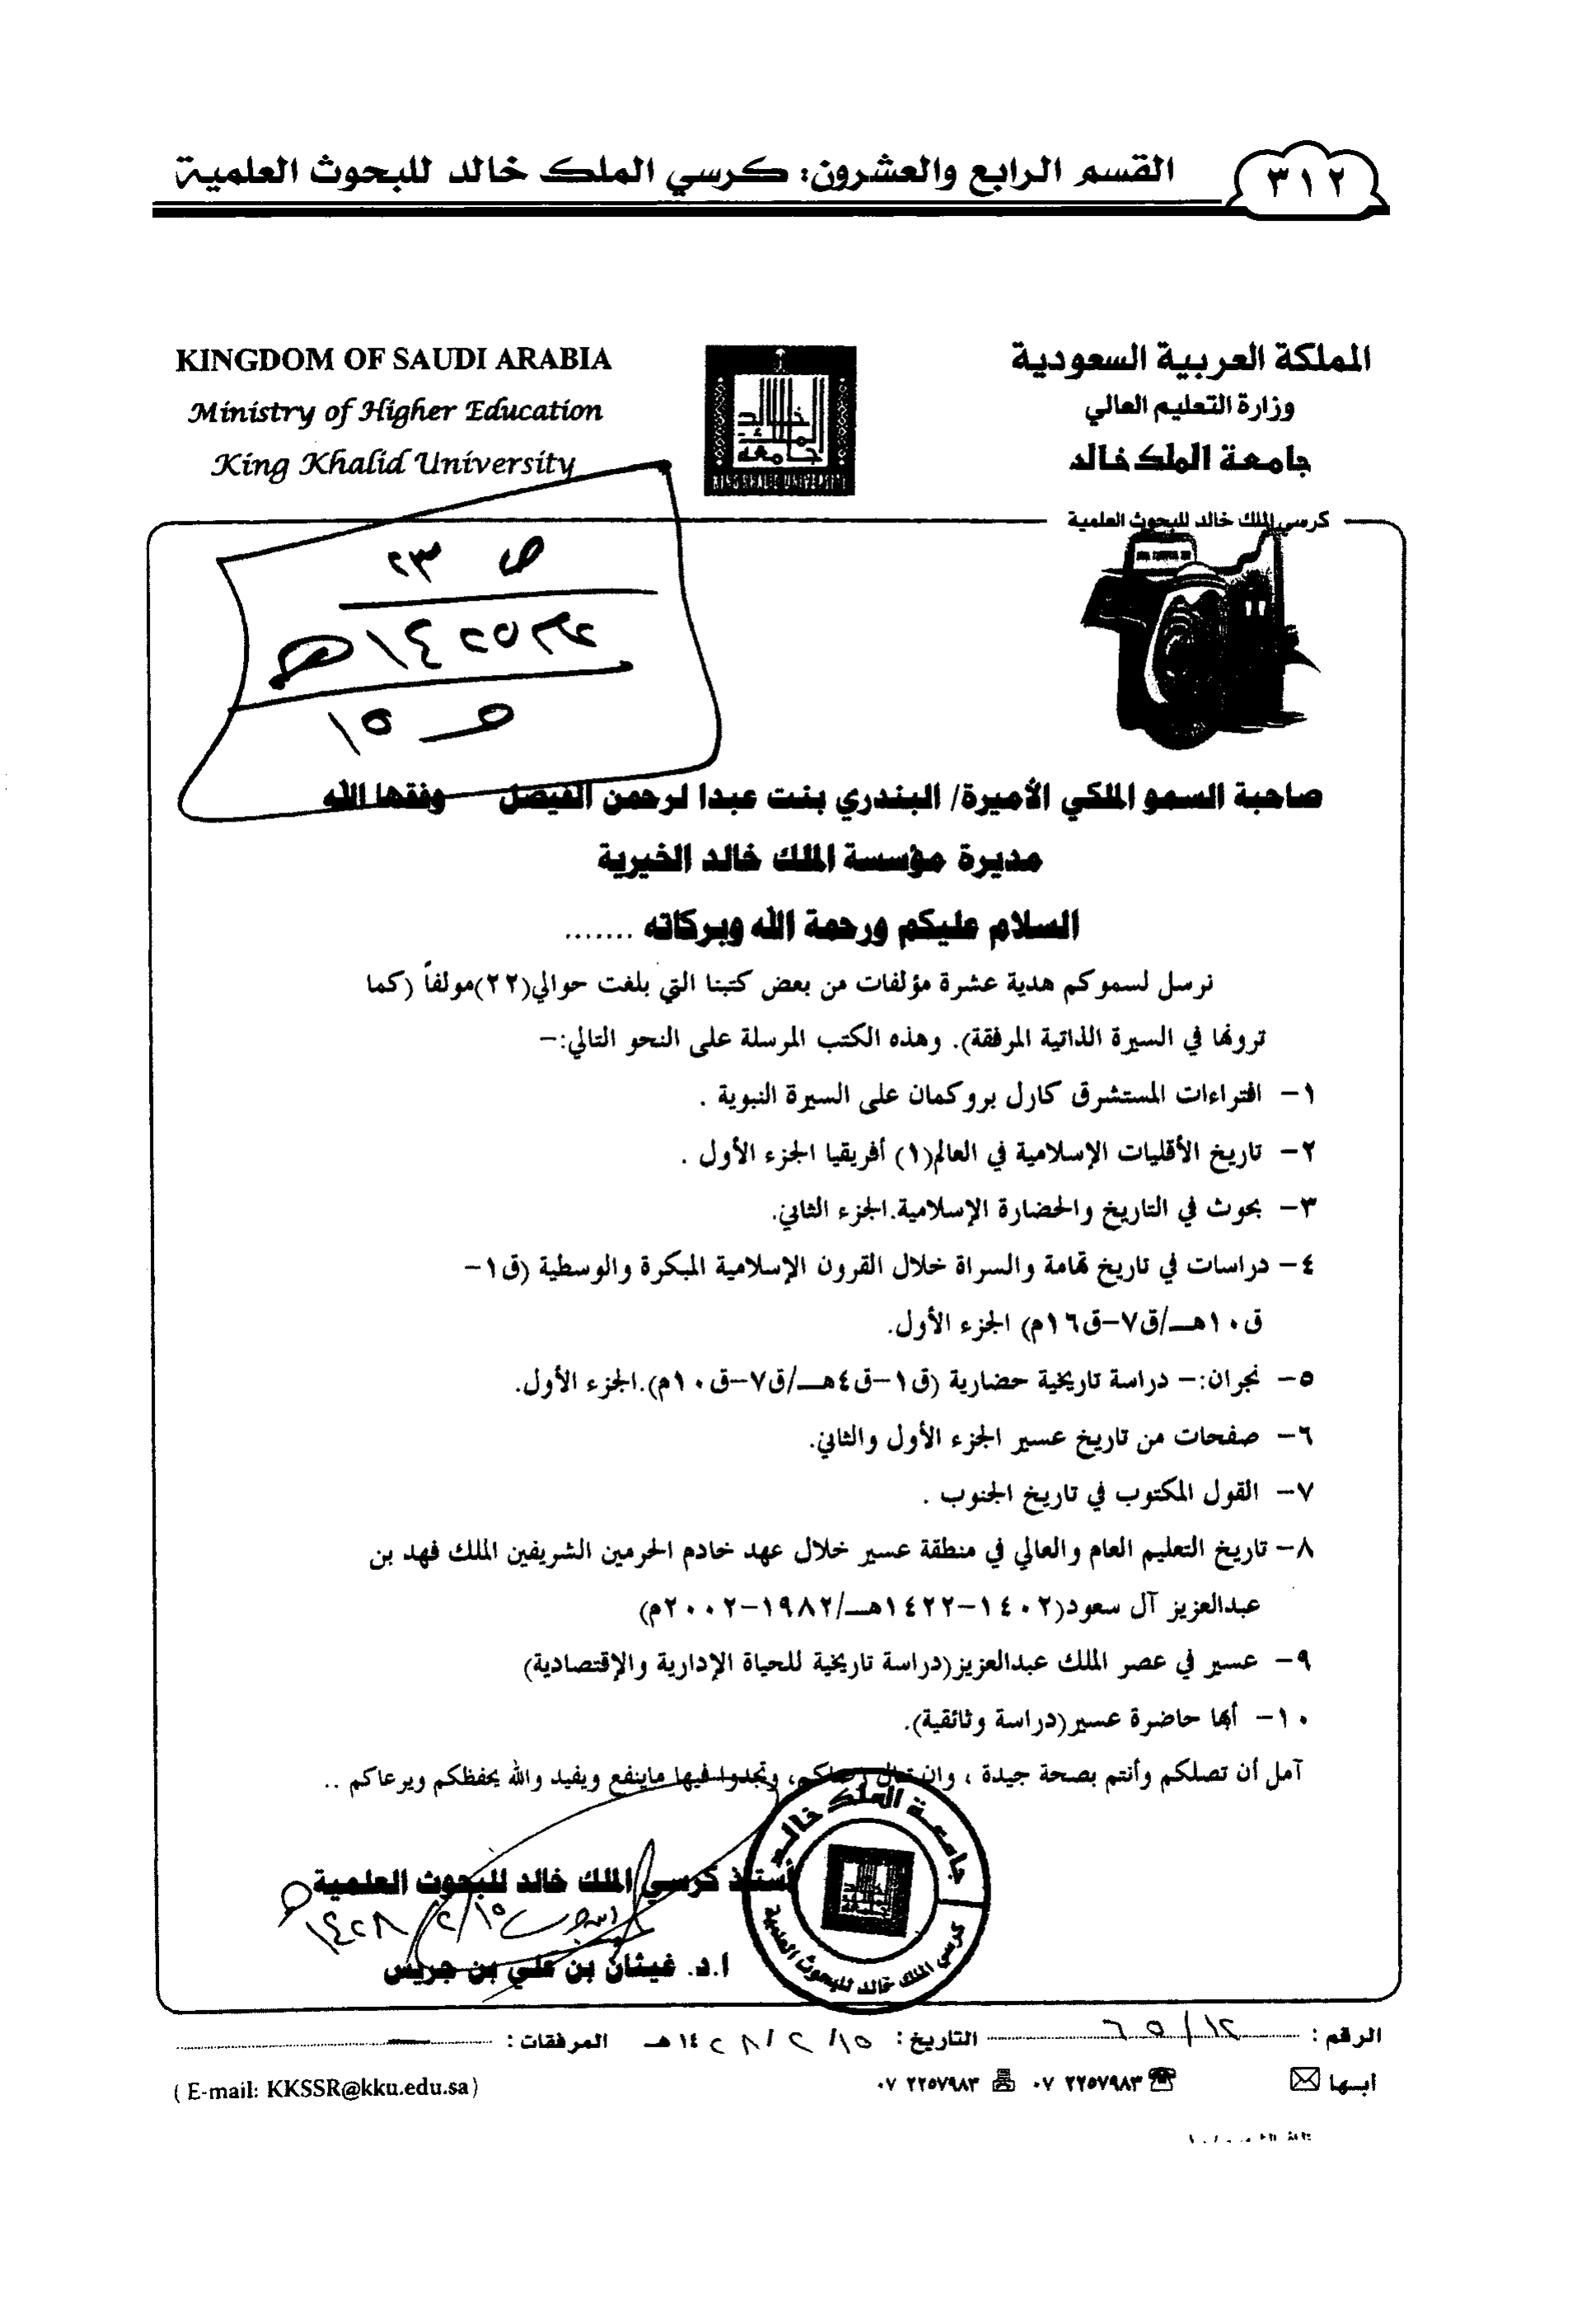 ٣١٢
القسم الرابع والعشرون: كرسي الملك خالد للبحوث العلمية
المملكة العربية السعودية
وزارة التعليم العالي
جامعة الملك خالد
KINGDOM OF SAUDI ARABIA
Ministry of Higher Education
King Khalid University
KING KHALID UNIVERSITY
كرسي الملك خالد للبحوث العلمية
ص ٢٣
ص ١٥
صاحبة السمو الملكي الأميرة/ البندري بنت عبدا لرحمن الفيصل وفقها الله
مديرة مؤسسة الملك خالد الخيرية
السلام عليكم ورحمة الله وبركاته .......
نرسل لسموكم هدية عشرة مؤلفات من بعض كتبنا التي بلغت حوالي(٢٢)مولفاً (كما
ترونها في السيرة الذاتية المرفقة). وهذه الكتب المرسلة على النحو التالي:-
١- افتراءات المستشرق كارل بروكمان على السيرة النبوية .
٢- تاريخ الأقليات الإسلامية في العالم(١) أفريقيا الجزء الأول .
٣- بحوث في التاريخ والحضارة الإسلامية.الجزء الثاني.
٤- دراسات في تاريخ تهامة والسراة خلال القرون الإسلامية المبكرة والوسطية (ق١-
ق١٠هـ/ق٧-ق١٦م) الجزء الأول.
٥- نجران:- دراسة تاريخية حضارية (ق١-ق٤هـ/ق٧-ق١٠م).الجزء الأول.
٦- صفحات من تاريخ عسير الجزء الأول والثاني.
٧- القول المكتوب في تاريخ الجنوب .
٨- تاريخ التعليم العام والعالي في منطقة عسير خلال عهد خادم الحرمين الشريفين الملك فهد بن
عبدالعزيز آل سعود(١٤٠٢-١٤٢٢هـ/١٩٨٢-٢٠٠٢م)
٩- عسير في عصر الملك عبدالعزيز(دراسة تاريخية للحياة الإدارية والإقتصادية)
١٠- أبها حاضرة عسير(دراسة وثائقية).
آمل أن تصلكم وأنتم بصحة جيدة ، وان تنال رضاكم، وتجدوا فيها ماينفع ويفيد والله يحفظكم ويرعاكم ..
جامعة الملك خالد
كرسي الملك خالد للبحوث العلمية
أستاذ كرسي الملك خالد للبحوث العلمية
١٥/٢/١٤٢٨هـ
أ.د. غيثان بن علي بن جريس
الرقم : ٦٥/١٢ التاريخ : ١٥/٢/١٤٢٨هـ المرفقات :
ابها ٠٧ ٢٢٥٧٩٨٣ ٠٧ ٢٢٥٧٩٨٣
( E-mail: KKSSR@kku.edu.sa)